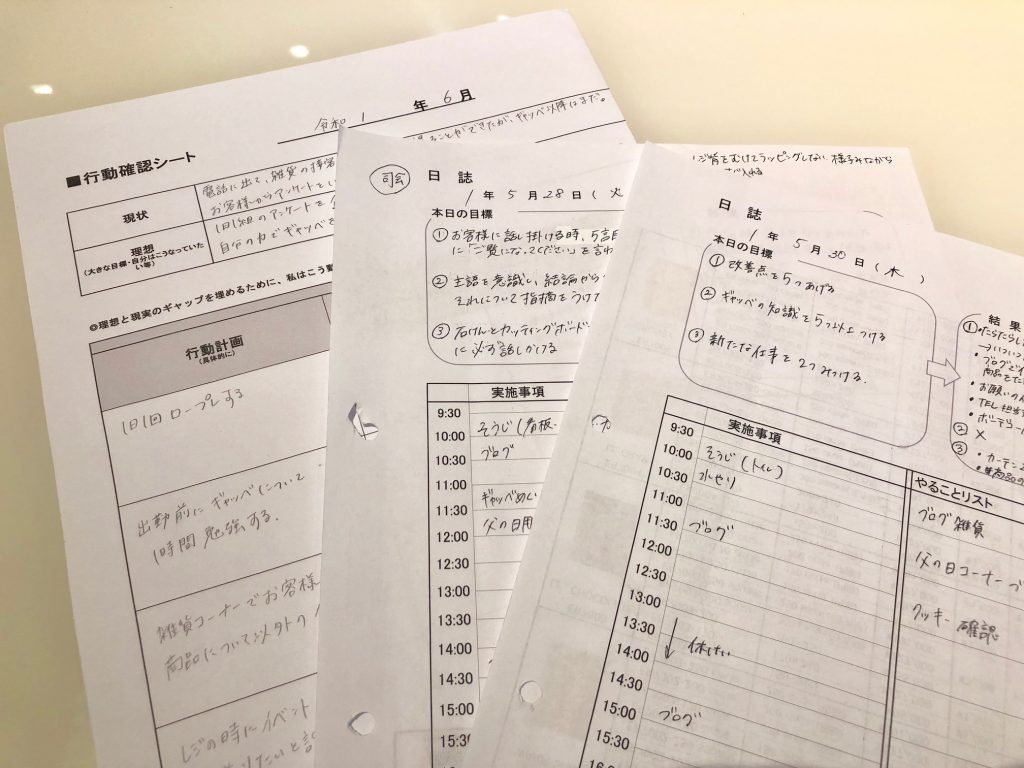 令和 1 年 6 月
■行動確認シート
現状
電話に出て、雑貨の接客
ることができたが、ギャッベ以降はまだ。
お客様からアンケートを
理想
(大きな目標・自分はこうなっていたい等)
1日1組のアンケートを
自分の力でギャッベを
◎理想と現実のギャップを埋めるために、私はこう動
行動計画
(具体的に)
1日1回ロープレする
出勤前にギャッベについて
1時間勉強する。
雑貨コーナーでお客様
商品について以外の
レジの時にイベント
りたいと
司会
日 誌
1 年 5 月 28 日 ( 火
本日の目標
① お客様に話し掛ける時、5
に「ご覧になってください」を言わ
② 主語を意識し、結論から
それについて指摘をうけ
③ 石けんとカッティングボード
に必ず話しかける
実施事項
9:30
10:00 そうじ(看板
10:30 ブログ
11:00
11:30 ギャッベめく
12:00 父の日用
12:30
13:00
13:30
14:00
14:30
15:00
15:3
レジ背をむけてラッピングしない 様子みながら
入れる
日 誌
1 年 5 月 30 日 ( 木 )
本日の目標
① 改善点を5つあげる
② ギャッベの知識を5つ以上つける
③ 新たな仕事を2つみつける。
結 果
① だらだらし
→いつ
・ブログで
商品をた
・お願いの
・TEL担当
・ボーデコー
② ×
③ ・カーテン
実施事項
やることリスト
9:30
10:00 そうじ(トイレ)
10:30 水やり
11:00
11:30 ブログ
12:00
12:30
13:00
13:30
14:00 ↓ 休けい
14:30
15:00 ブログ
15:30
16:0
ブログ 雑貨
父の日コーナー
クッキー 確認